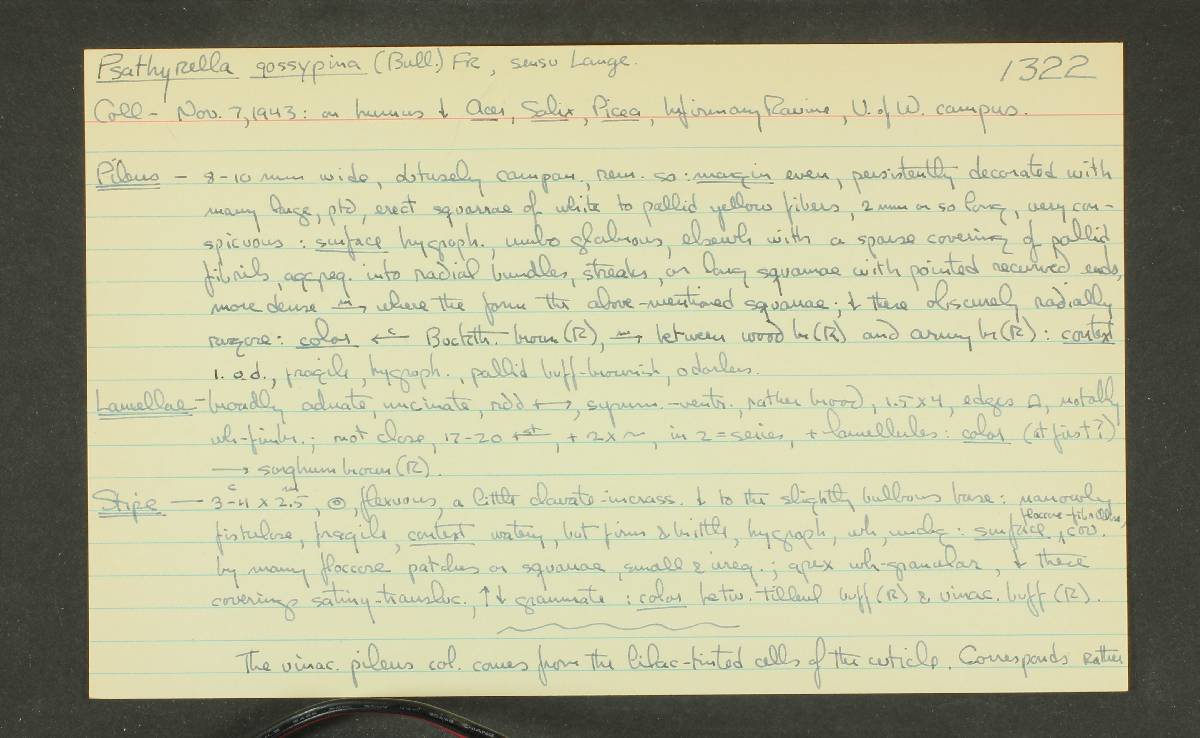 Psathyrella gossypina (Bull.) Fr, sensu Lange.
1322
Coll - Nov. 7, 1943: on humus ↓ Acer, Salix, Picea, Infirmary Ravine, U. of W. campus.
Pileus - 8-10 mm wide, obtusely campan., rem. so: margin even, persistently decorated with
many large, ptd, erect squamae of white to pallid yellow fibers, 2 mm or so long, very con-
spicuous: surface hygroph., umbo glabrous, elsewh. with a sparse covering of pallid
fibrils, aggreg. into radial bundles, streaks, or long squamae with pointed recurved ends,
more dense m→ where the form the above-mentioned squamae; ↓ these obscurely radially
rugose: color ←c Buckth. brown (R), m→ between wood br (R) and army br (R): context
1. o.d., fragile, hygroph., pallid buff-brownish, odorless.
Lamellae - broadly adnate, uncinate, rdd ↔, symm.-ventr., rather broad, 1.5 x 4, edges notally
wh-fimbr.; not close, 17-20 + 2x ~, in 2 = series, + lamellules: color (at first?)
→ sorghum brown (R).
Stipe - 3-4 c x 2.5 m, ⊙, flexuous, a little clavate-incrass. ↓ to the slightly bulbous base: narrowly
fistulose, fragile, context watery, but firm & brittle, hygroph, wh, undg: surface floccose-fibrillose, cov.
by many floccose patches or squamae, small & irreg.; apex wh-granular, ↓ these
coverings satiny-transluc., ↑↓ : color betw. tilleul buff (R) & vinac. buff (R).
The vinac. pileus col. comes from the lilac-tinted cells of the cuticle. Corresponds rather